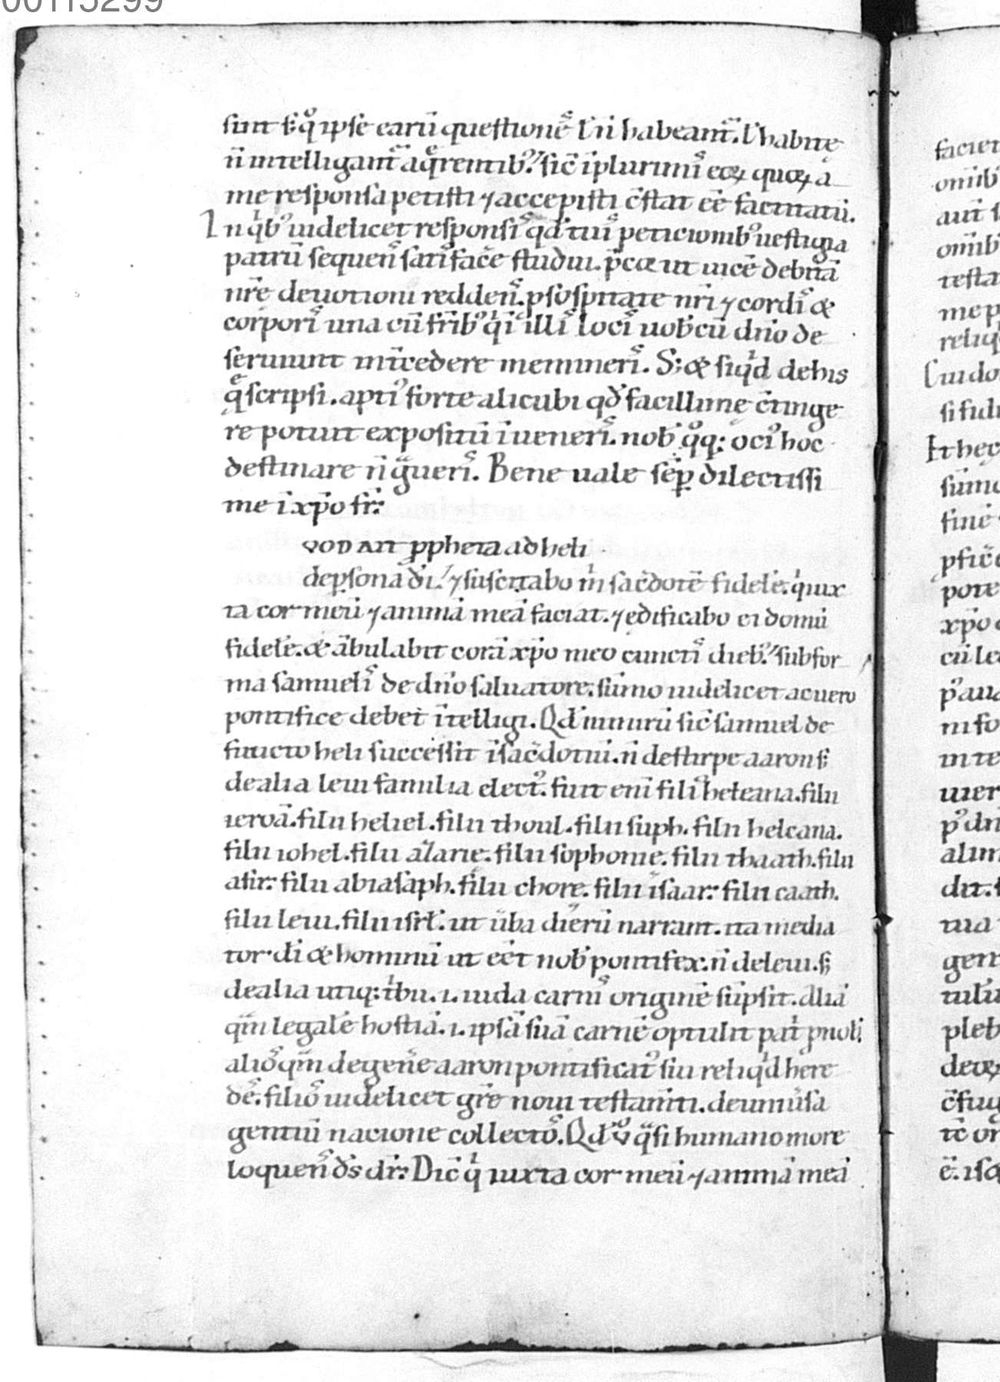 00115299
sunt s; q͛ ipse earū questionē l' n̄ habeant̄. l' habite
n̄ intelligant̄ aq̄rentib;. sic̄ ī plurimis eoꝝ quoꝝ a
me responsa petisti ⁊ accepisti c̄stat eē factitatū.
In qͥb; uidelicet responsis qd' tuis peticionib; uestigia
patrū sequens satisfac̄e studui. p̄cor ut uicē debitā
nr̄e deuotioni reddens. p sospitate nr̄i ⁊ cordis &
corporis una cū fr̄ib; qͥ illis locis uob'cū dn̄o de
seruiunt int̄cedere memineris. S; & siqͥd de his
q̄ scripsi. aptius forte alicubi qd' facillime c̄tinge
re potuit expositū īueneris. nob' q̊q; oci; hoc
destinare n̄ g̃ueris. Bene uale sēp dilectissi
me ī xp̄o fr̄.
VOD AIT ꝓpheta ad heli
de ꝑsona dī. ⁊ suscitabo m̄ sac̄dotē fidelē. qͥ iux
ta cor meū ⁊ animā meā faciat. ⁊ edificabo ei domū
fidelē. & ābulabit corā xp̄o meo cunctis dieb;. sub for
ma samuelis de dn̄o saluatore. sūmo uidelicet ac uero
pontifice debet ītelligi. Qd' nimirū sic̄ samuel de
functo heli successit ī sac̄dotiū. n̄ de stirpe aaron s;
de alia leui familia elect;. fuit enī filius heleana. filii
ieroā. filii heliel. filii thoul. filii suph. filii helcana.
filii iohel. filii azarie. filii sophonie. filii thaath. filii
asir. filii abiasaph. filii chore. filii isaar. filii caath.
filii leui. filii isrl'. ut ūba dierū narrant. ita media
tor dī & hominū ut eēt nob' pontifex. n̄ de leui. s;
de alia utiq; tͥbu. i. iuda carnis originē sūpsit. Aliā
qͣm legalē hostiā. i. ipsā suā carnē optulit patͥ p nob'.
alios qͣm de genē aaron pontificat; sui reliqͥd herе
des. filios uidelicet gr̄e noui testam̄ti. de uniūsa
gentiū nacione collectos. Qd' ů qͣsi humano more
loquens ds̄ dr̄. Dic̄ qͥ iuxta cor meū ⁊ animā meā